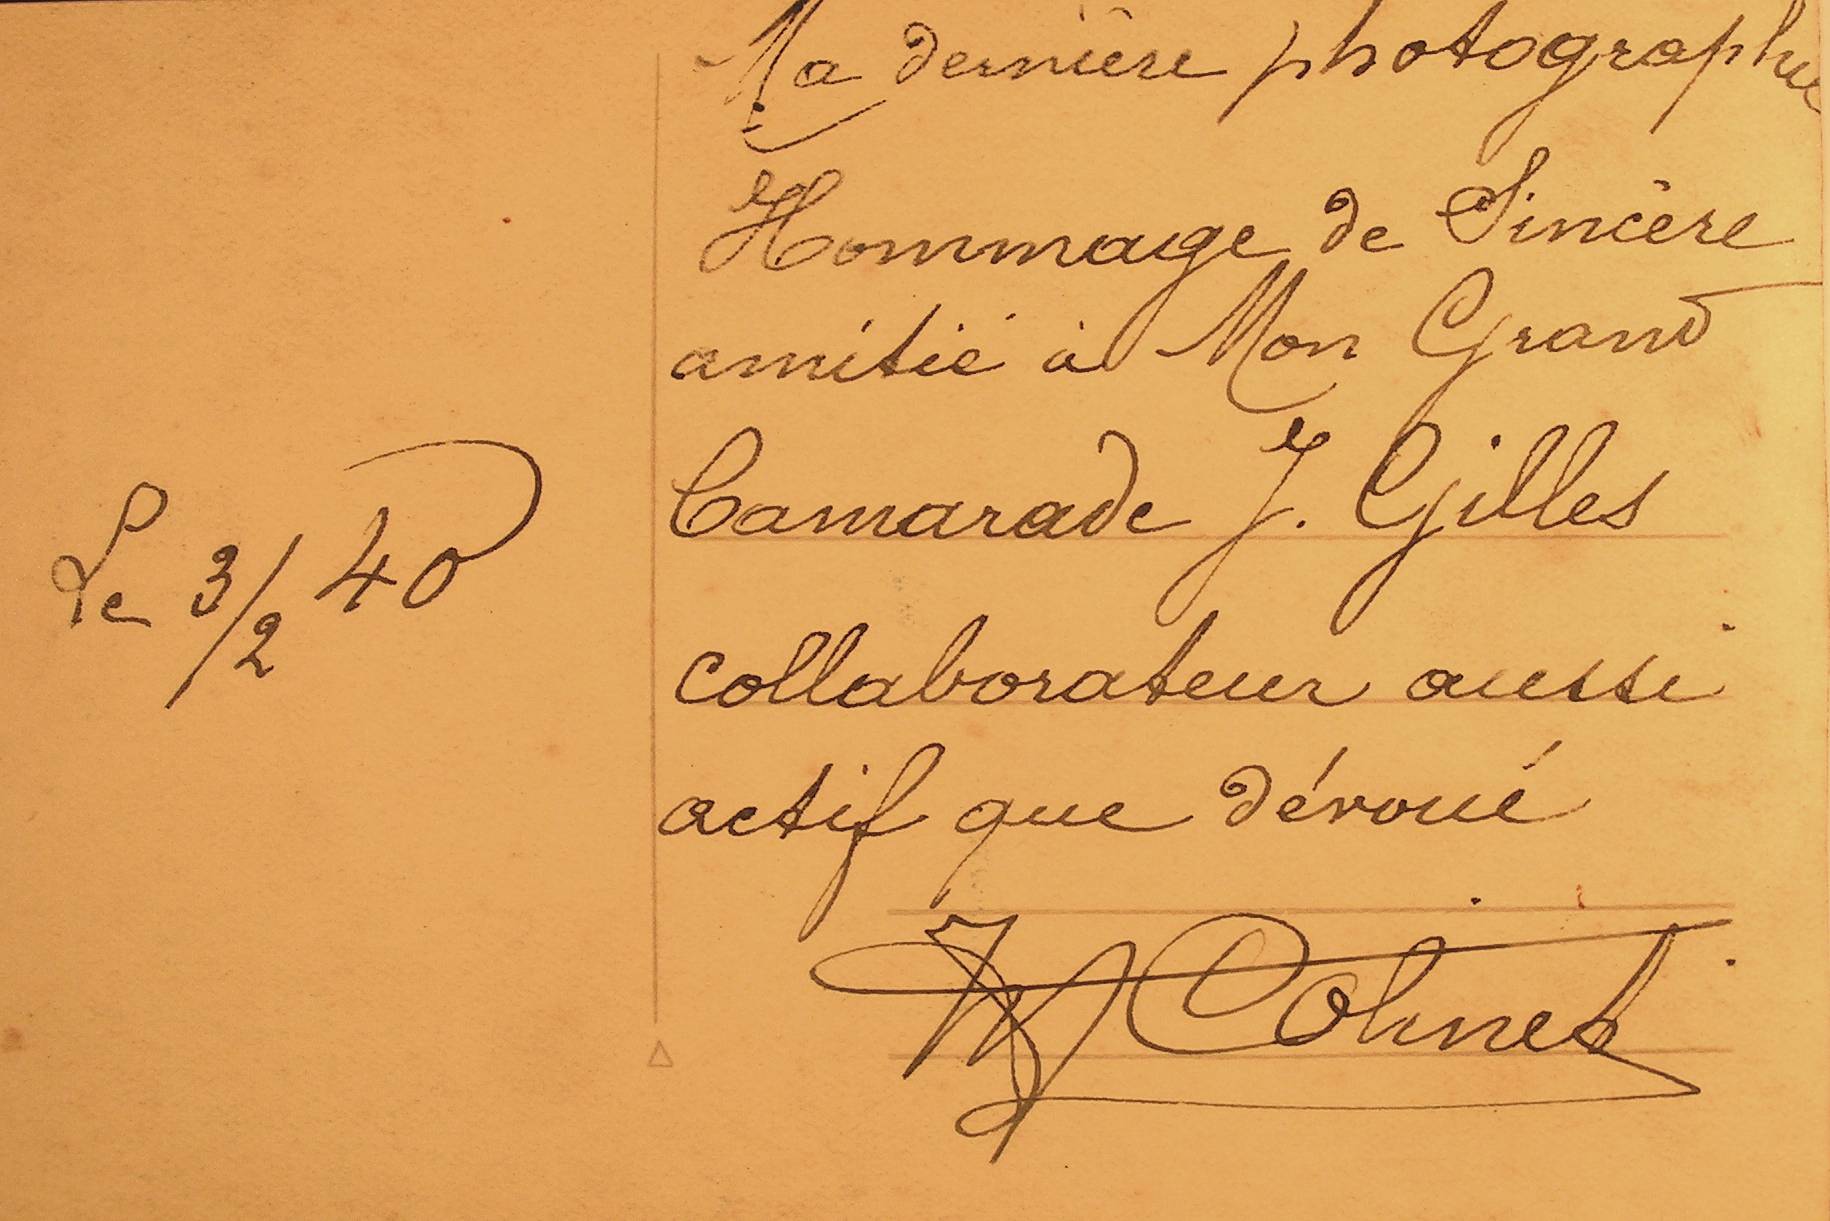 Ma dernière photographie
Hommage de Sincère
amitié à Mon Grand
Camarade J. Gilles
Le 3/2 40
collaborateur aussi
actif que dévoué
Colinet